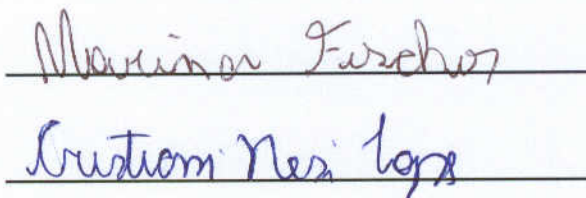 Marina Fischer
Cristiani Nesi Lopes